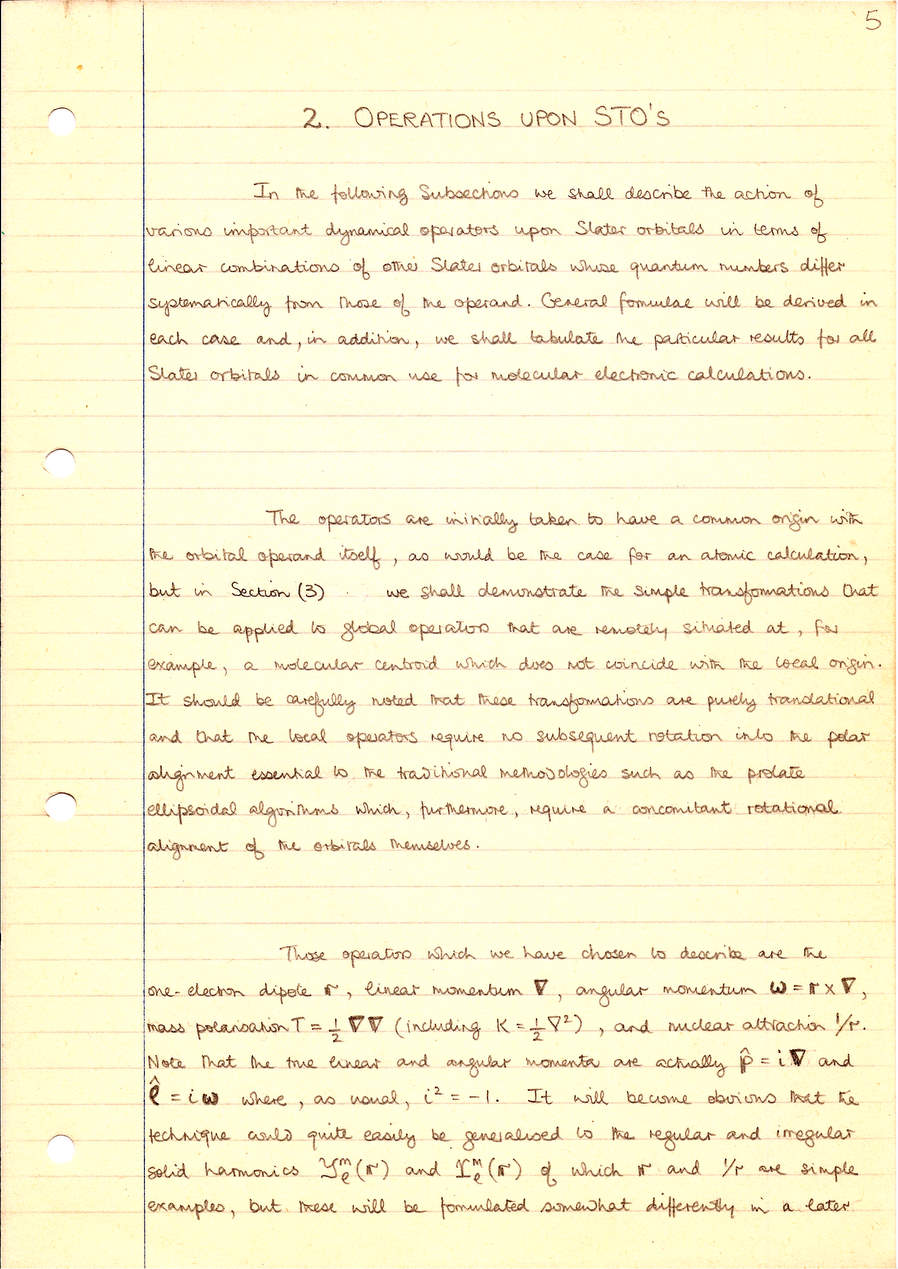 5
2. OPERATIONS UPON STO'S
In the following Subsections we shall describe the action of
various important dynamical operators upon Slater orbitals in terms of
linear combinations of other Slater orbitals whose quantum numbers differ
systematically from those of the operand. General formulae will be derived in
each case and, in addition, we shall tabulate the particular results for all
Slater orbitals in common use for molecular electronic calculations.
The operators are initially taken to have a common origin with
the orbital operand itself, as would be the case for an atomic calculation,
but in Section (3) we shall demonstrate the simple transformations that
can be applied to global operators that are remotely situated at, for
example, a molecular centroid which does not coincide with the local origin.
It should be carefully noted that these transformations are purely translational
and that the local operators require no subsequent rotation into the polar
alignment essential to the traditional methodologies such as the prolate
ellipsoidal algorithms which, furthermore, require a concomitant rotational
alignment of the orbitals themselves.
Those operators which we have chosen to describe are the
one-electron dipole 𝕣, linear momentum ∇, angular momentum ω = 𝕣 × ∇,
mass polarisation T = ½ ∇∇ (including K = ½∇²), and nuclear attraction 1/r.
Note that the true linear and angular momenta are actually p̂ = i∇ and
ℓ̂ = iω where, as usual, i² = -1. It will become obvious that the
technique could quite easily be generalised to the regular and irregular
solid harmonics 𝒴ₗᵐ(𝕣) and Yₗᵐ(𝕣) of which 𝕣 and 1/r are simple
examples, but these will be formulated somewhat differently in a later